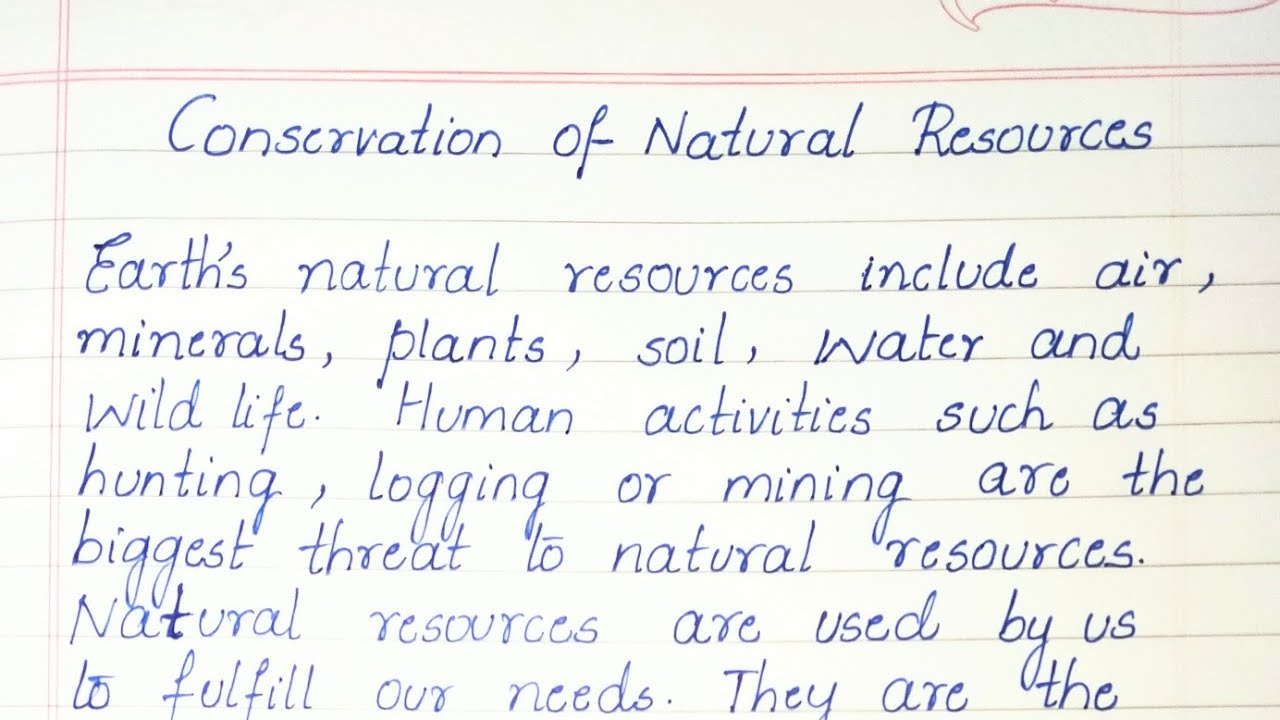 Conservation of Natural Resources
Earth's natural resources include air,
minerals, plants, soil, water and
wild life. Human activities such as
hunting, logging or mining are the
biggest threat to natural resources.
Natural resources are used by us
to fulfill our needs. They are the